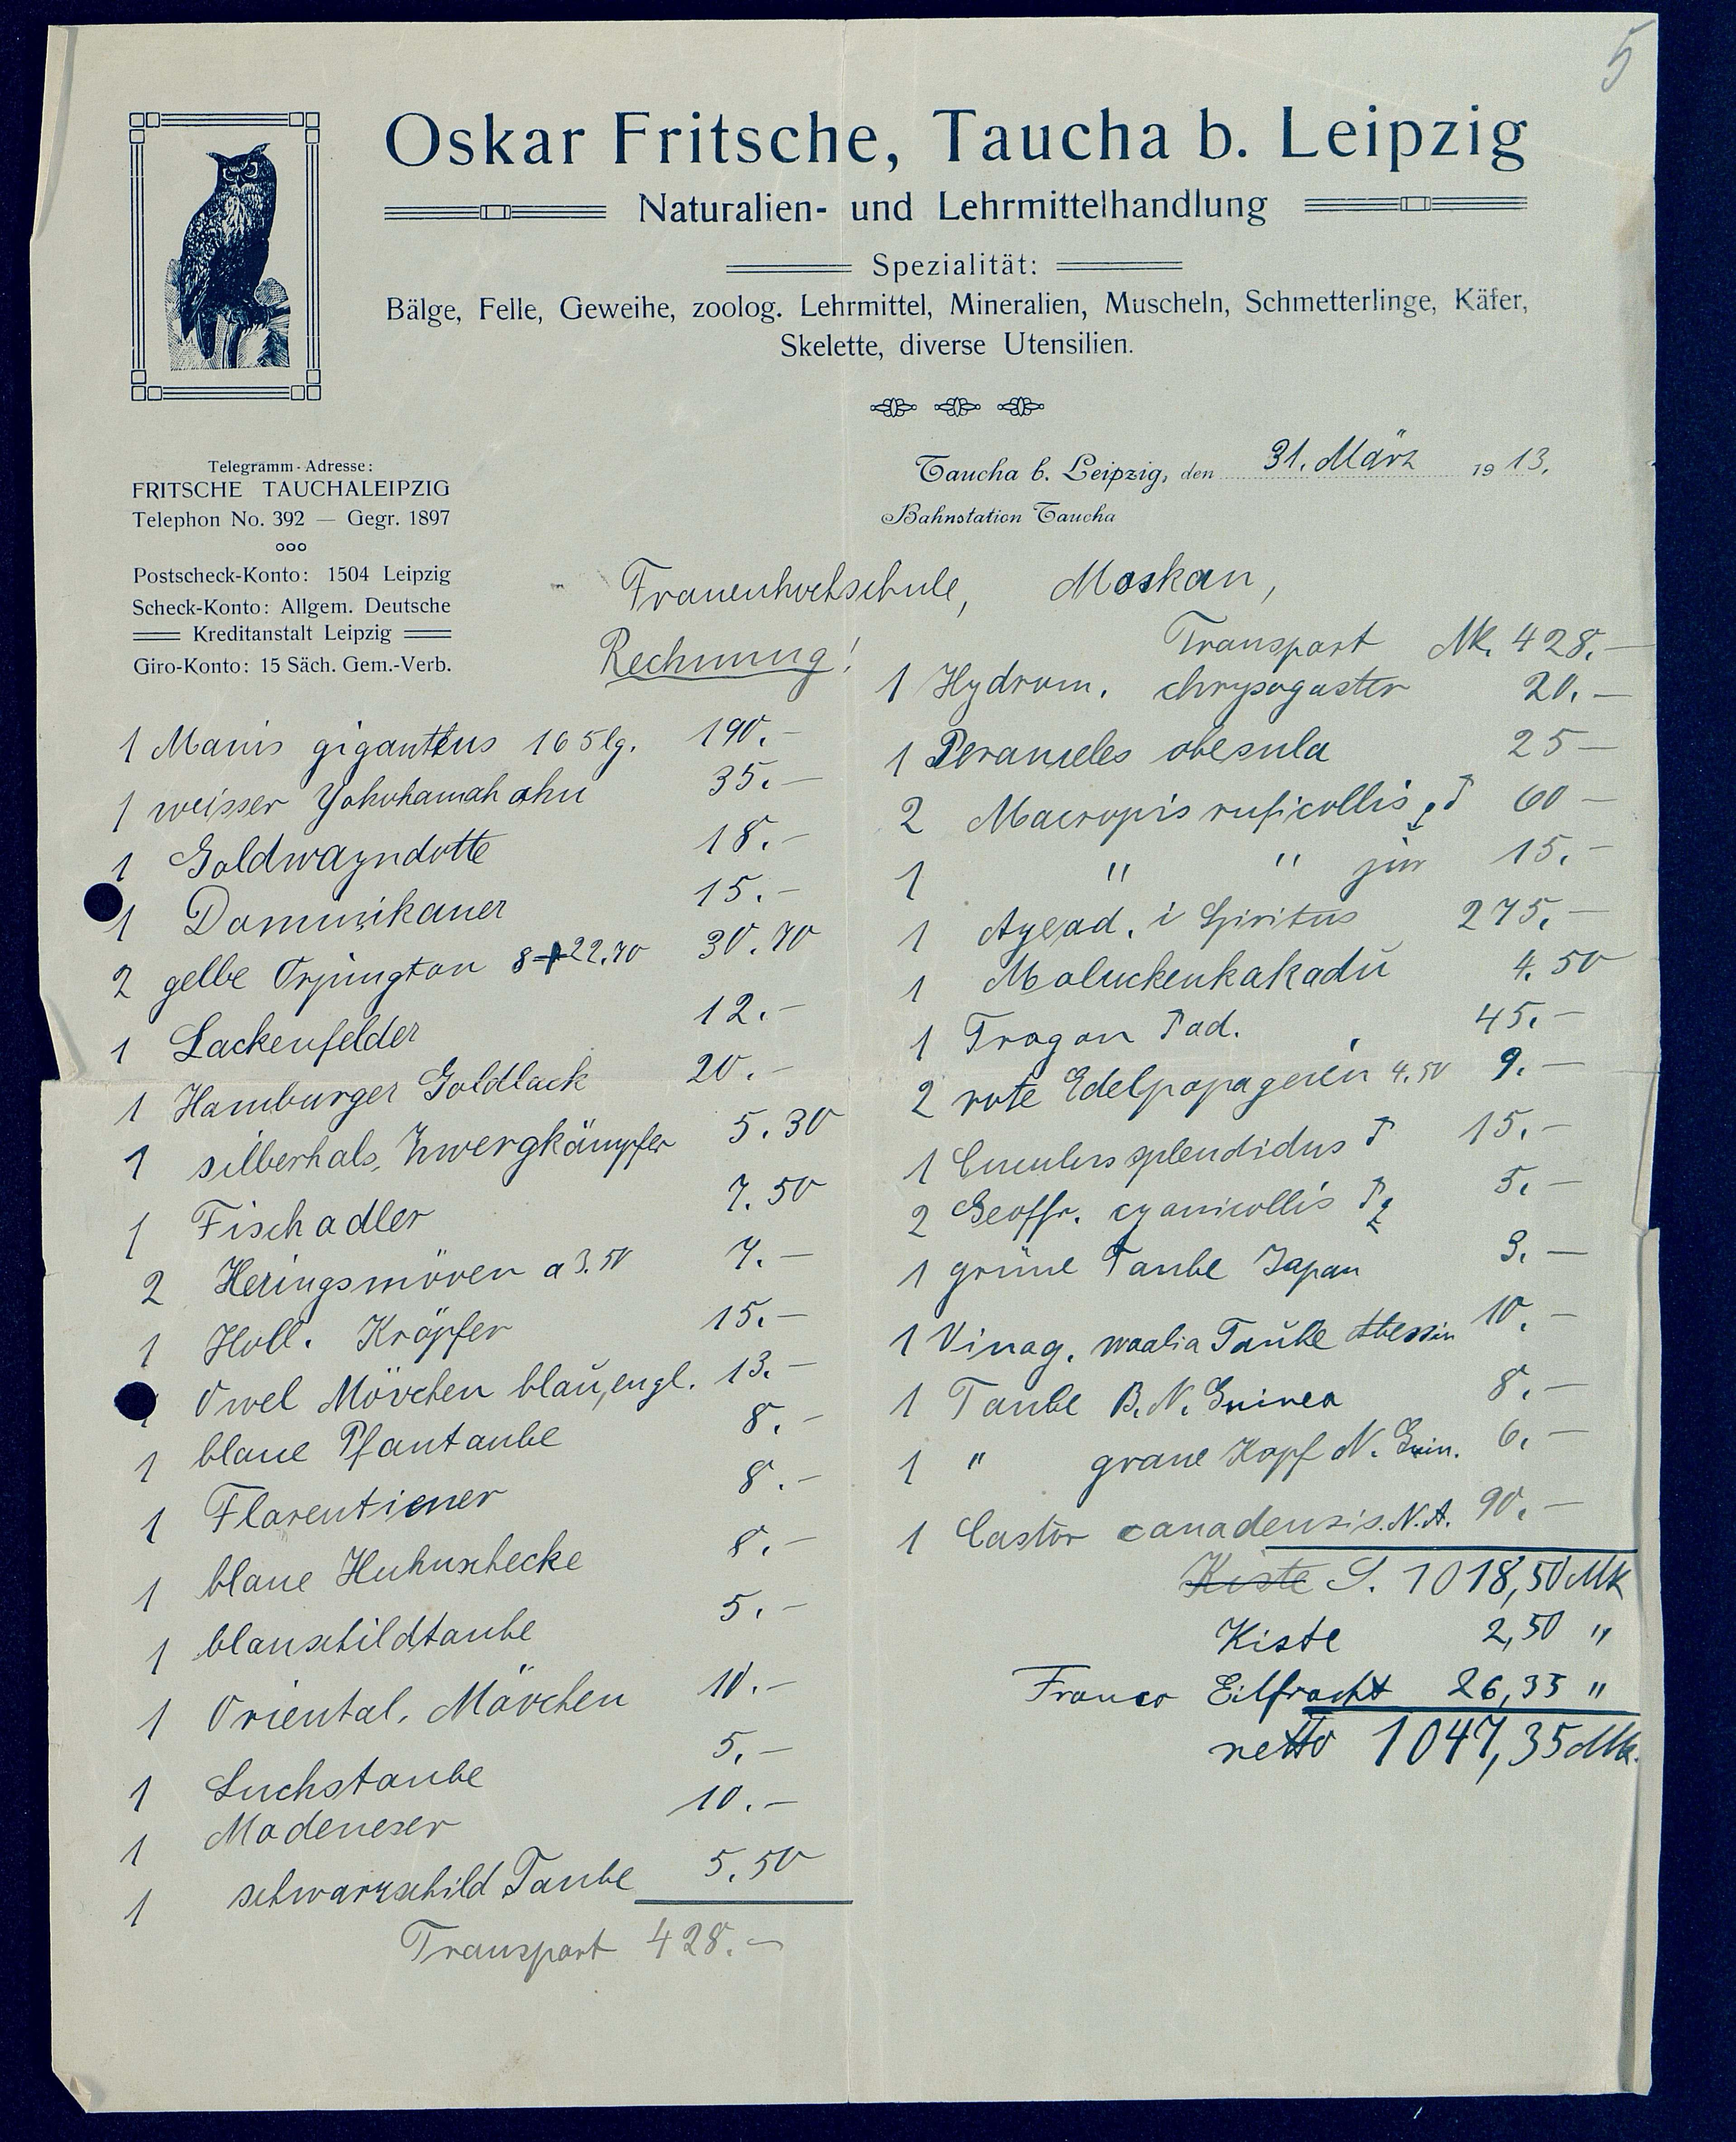 5
Oskar Fritsche, Taucha b. Leipzig
Naturalien- und Lehrmittelhandlung
Spezialität:
Bälge, Felle, Geweihe, zoolog. Lehrmittel, Mineralien, Muscheln, Schmetterlinge, Käfer,
Skelette, diverse Utensilien.
Telegramm-Adresse:
FRITSCHE TAUCHALEIPZIG
Telephon No. 392 — Gegr. 1897
Postscheck-Konto: 1504 Leipzig
Scheck-Konto: Allgem. Deutsche
Kreditanstalt Leipzig
Giro-Konto: 15 Säch. Gem.-Verb.
Taucha b. Leipzig, den 31. März 1913.
Bahnstation Taucha
Frauenhochschule, Moskau,
Rechnung!
1 Manis giganteus 165 lg. 190.-
1 weisser Yokohamahahn 35.-
1 Goldwayndotte 18.-
1 Dominikaner 15.-
2 gelbe Orpington 8+22.70 30.70
1 Lackenfelder 12.-
1 Hamburger Goldlack 20.-
1 silberhals. Zwergkämpfer 5.30
1 Fischadler 7.50
2 Heringsmöven a 3.50 7.-
1 Holl. Kröpfer 15.-
Owel Mövchen blau, engl. 13.-
1 blaue Pfautaube 8.-
1 Florentiener 8.-
1 blaue Huhnschecke 8.-
1 blauschildtaube 5.-
1 Oriental. Mövchen 10.-
1 Luchstaube 5.-
1 Modeneser 10.-
1 schwarzschild Taube 5.50
Transport 428.-
Transport Mk. 428.-
1 Hydrom. chrysogaster 20.-
1 Perameles obesula 25-
2 Macropis ruficollis ♀♂ 60-
1 " " juv 15.-
1 ad. i Spiritus 275.-
1 Moluckenkakadu 4.50
1 Trogon ♂ ad. 45.-
2 rote Edelpapageien 4.50 9.-
1 Cuculus splendidus ♂ 15.-
2 Geoffr. cyanicollis ♂♀ 5.-
1 grüne Taube Japan 3.-
1 Vinag. waalia Taube Abessin 10.-
1 Taube B. N. Guinea 8.-
1 " graue Kopf N. Guin. 6.-
1 Castor canadensis. N.A. 90.-
Kiste S. 1018,50 Mk
Kiste 2,50 "
Franco Eilfracht 26,35 "
netto 1047,35 Mk.